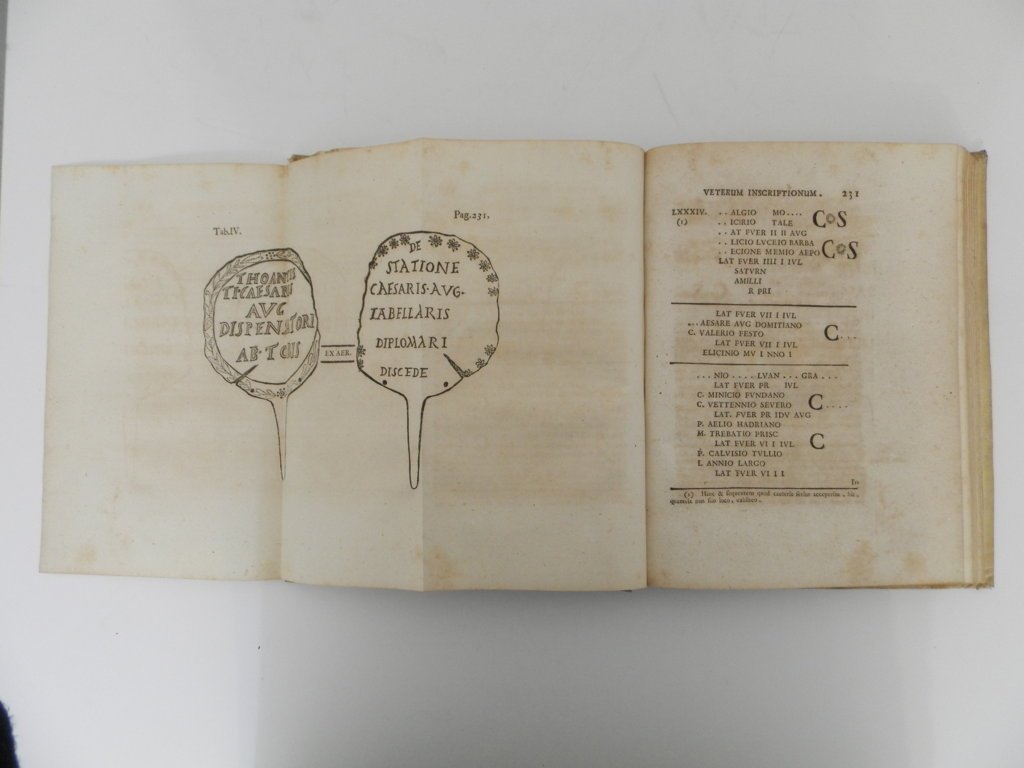 Tab.IV.
THOANTI
TI·CAESARIS
AVG
DISPENSATORI
EX AER.
Pag.231.
DE
STATIONE
CAESARIS·AVG·
TABELLARIS
DIPLOMARI
DISCEDE
VETERUM INSCRIPTIONUM. 231
LXXXIV. . . ALGIO MO.... COS
(1) . . ICIRIO TALE
. . AT FVER II II AVG
. . LICIO LVCEIO BARBA COS
. . ECIONE MEMIO AEPO
LAT FVER IIII I IVL
SATVRN
AMILLI
R PRI
LAT FVER VII I IVL
...AESARE AVG DOMITIANO
C. VALERIO FESTO C....
LAT FVER VII I IVL
ELICINIO MV I NNO I
....NIO.....LVAN...GRA....
LAT FVER PR IVL
C. MINICIO FVNDANO
C. VETTENNIO SEVERO C.....
LAT. FVER PR IDV AVG
P. AELIO HADRIANO
M. TREBATIO PRISC C
LAT FVER VI I IVL
P. CALVISIO TVLLIO
L ANNIO LARGO
LAT FVER VI I I
(1) Hinc & sequentem quod caeteris serius acceperim, hic,
quamvis non suo loco,